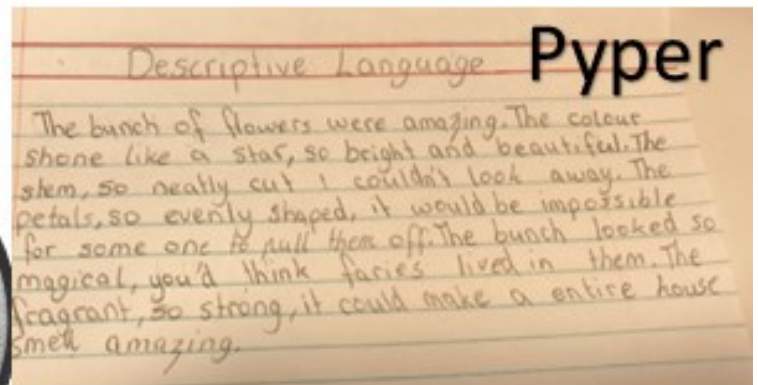 Descriptive Language Pyper
The bunch of flowers were amazing. The colour
shone like a star, so beight and beautiful. The
stem, so neatly cut i couldn't look away. The
petals, so evenly shaped, it would be impossible
for some one to pull them off. The bunch looked so
magical, you'd think faries lived in them. The
fragrant, so strong, it could make a entire house
smell amazing.